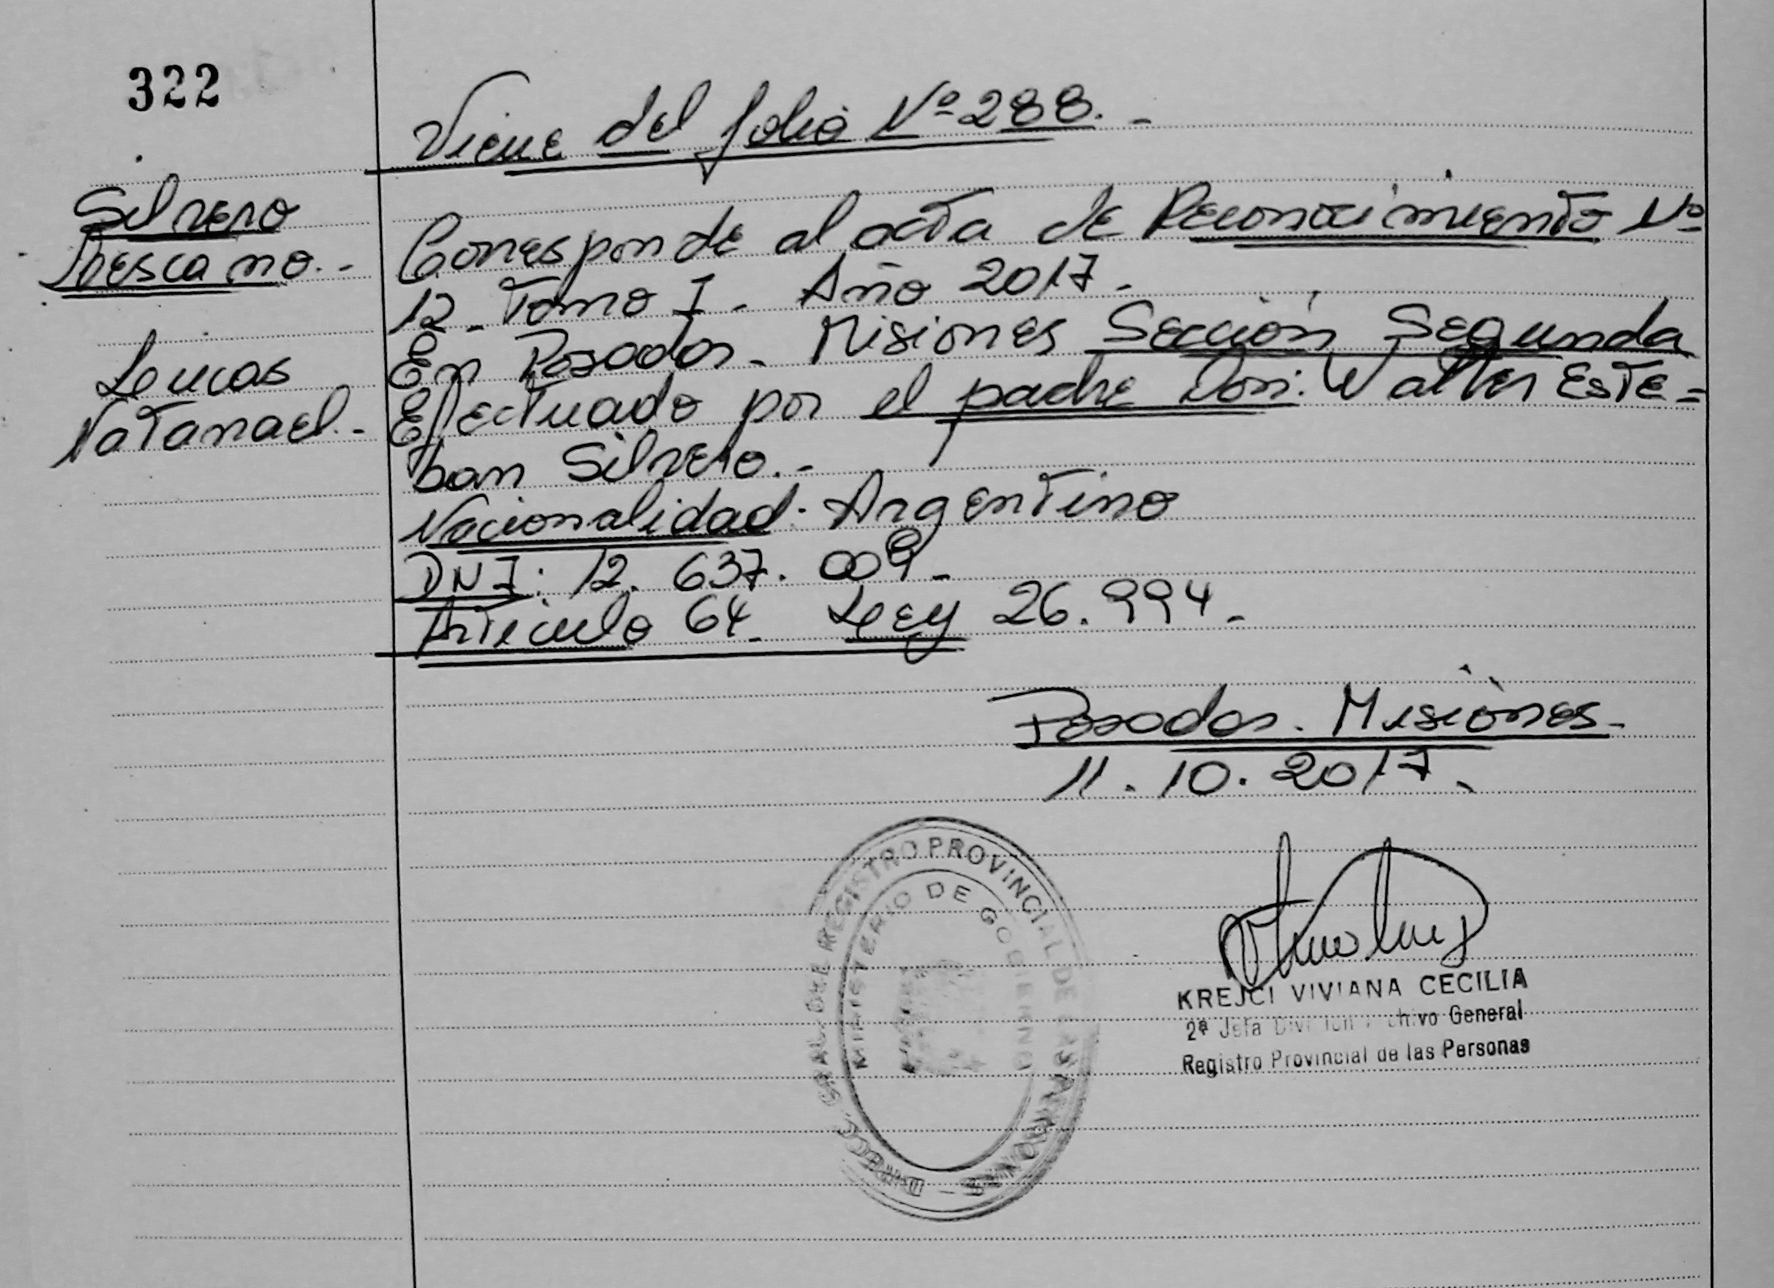 322
Viene del folio Nº 288.-
Silvero
Lescano.-
Lucas
Natanael.-
Corresponde al acta de Reconocimiento Nº
12. Tomo I. Año 2017.
En Posadas. Misiones Sección Segunda
Efectuado por el padre Don: Walter Este=
ban Silvero.-
Nacionalidad. Argentino
DNI: 12. 637. 009.
Articulo 64. Ley 26.994.-
Posadas. Misiones.
11.10.2017.
DIRECC. GRAL. DEL REGISTRO PROVINCIAL DE LAS PERSONAS -
MINISTERIO DE GOBIERNO
KREJCI VIVIANA CECILIA
2ª Jefa División Archivo General
Registro Provincial de las Personas